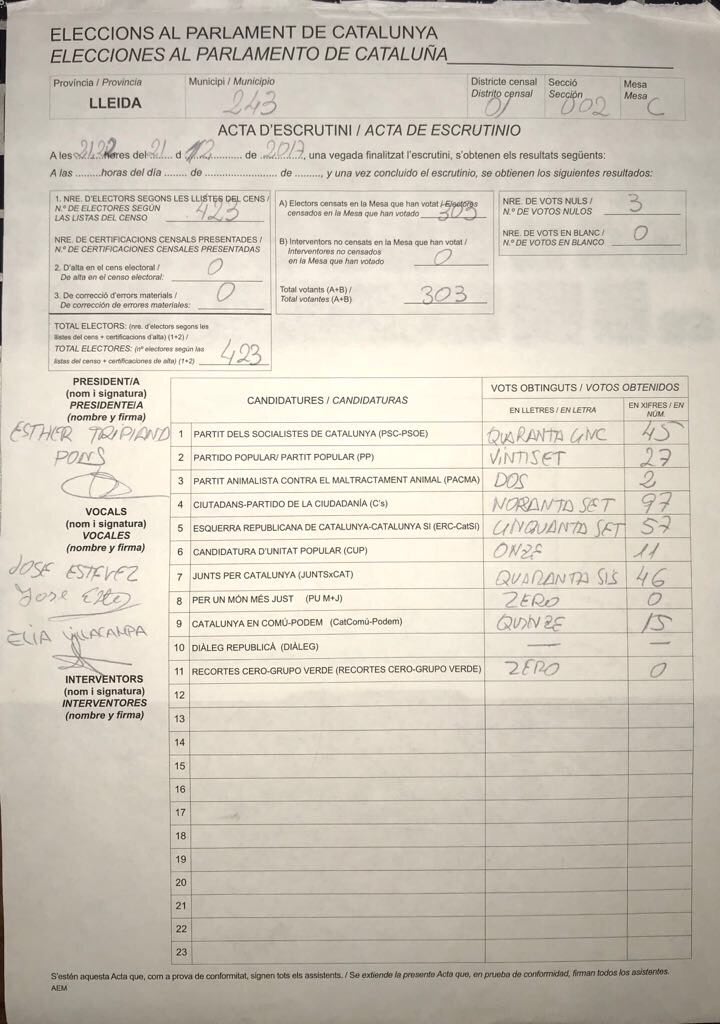 ELECCIONS AL PARLAMENT DE CATALUNYA
ELECCIONES AL PARLAMENTO DE CATALUÑA
Província / Provincia
LLEIDA
Municipi / Municipio
243
Districte censal
Distrito censal
01
Secció
Sección
002
Mesa
Mesa
C
ACTA D'ESCRUTINI / ACTA DE ESCRUTINIO
A les 21,22 hores del 21 d 12 de 2017, una vegada finalitzat l'escrutini, s'obtenen els resultats següents:
A las .........horas del día ....... de ............... de ......., y una vez concluido el escrutinio, se obtienen los siguientes resultados:
1. NRE. D'ELECTORS SEGONS LES LLISTES DEL CENS /
N.º DE ELECTORES SEGÚN
LAS LISTAS DEL CENSO
423
NRE. DE CERTIFICACIONS CENSALS PRESENTADES /
N.º DE CERTIFICACIONES CENSALES PRESENTADAS
2. D'alta en el cens electoral /
De alta en el censo electoral:
0
3. De correcció d'errors materials /
De corrección de errores materiales:
0
TOTAL ELECTORS: (nre. d'electors segons les
llistes del cens + certificacions d'alta) (1+2) /
TOTAL ELECTORES: (nº electores según las
listas del censo + certificaciones de alta) (1+2)
423
A) Electors censats en la Mesa que han votat / Electores
censados en la Mesa que han votado
303
B) Interventors no censats en la Mesa que han votat /
Interventores no censados
en la Mesa que han votado
0
Total votants (A+B) /
Total votantes (A+B)
303
NRE. DE VOTS NULS /
N.º DE VOTOS NULOS
3
NRE. DE VOTS EN BLANC /
N.º DE VOTOS EN BLANCO
0
PRESIDENT/A
(nom i signatura)
PRESIDENTE/A
(nombre y firma)
ESTHER TRIPIANO
PONS
VOCALS
(nom i signatura)
VOCALES
(nombre y firma)
JOSE ESTEVEZ
ELIA VILLACAMPA
INTERVENTORS
(nom i signatura)
INTERVENTORES
(nombre y firma)
CANDIDATURES / CANDIDATURAS
VOTS OBTINGUTS / VOTOS OBTENIDOS
EN LLETRES / EN LETRA
EN XIFRES / EN NÚM.
1 PARTIT DELS SOCIALISTES DE CATALUNYA (PSC-PSOE) QUARANTA CINC 45
2 PARTIDO POPULAR/ PARTIT POPULAR (PP) VINTISET 27
3 PARTIT ANIMALISTA CONTRA EL MALTRACTAMENT ANIMAL (PACMA) DOS 2
4 CIUTADANS-PARTIDO DE LA CIUDADANÍA (C's) NORANTA SET 97
5 ESQUERRA REPUBLICANA DE CATALUNYA-CATALUNYA SÍ (ERC-CatSí) CINQUANTA SET 57
6 CANDIDATURA D'UNITAT POPULAR (CUP) ONZE 11
7 JUNTS PER CATALUNYA (JUNTSxCAT) QUARANTA SIS 46
8 PER UN MÓN MÉS JUST (PU M+J) ZERO 0
9 CATALUNYA EN COMÚ-PODEM (CatComú-Podem) QUINZE 15
10 DIÀLEG REPUBLICÀ (DIÀLEG) — —
11 RECORTES CERO-GRUPO VERDE (RECORTES CERO-GRUPO VERDE) ZERO 0
12
13
14
15
16
17
18
19
20
21
22
23
S'estén aquesta Acta que, com a prova de conformitat, signen tots els assistents. / Se extiende la presente Acta que, en prueba de conformidad, firman todos los asistentes.
AEM